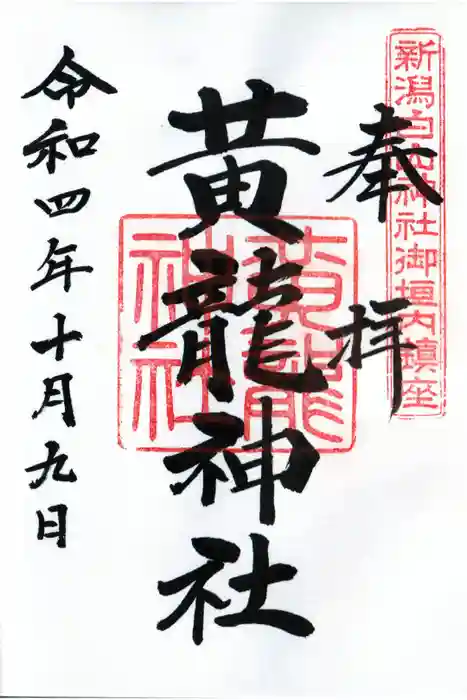 新潟白山神社御垣内鎮坐
奉拝
黄龍神社
黄龍神社
令和四年十月九日